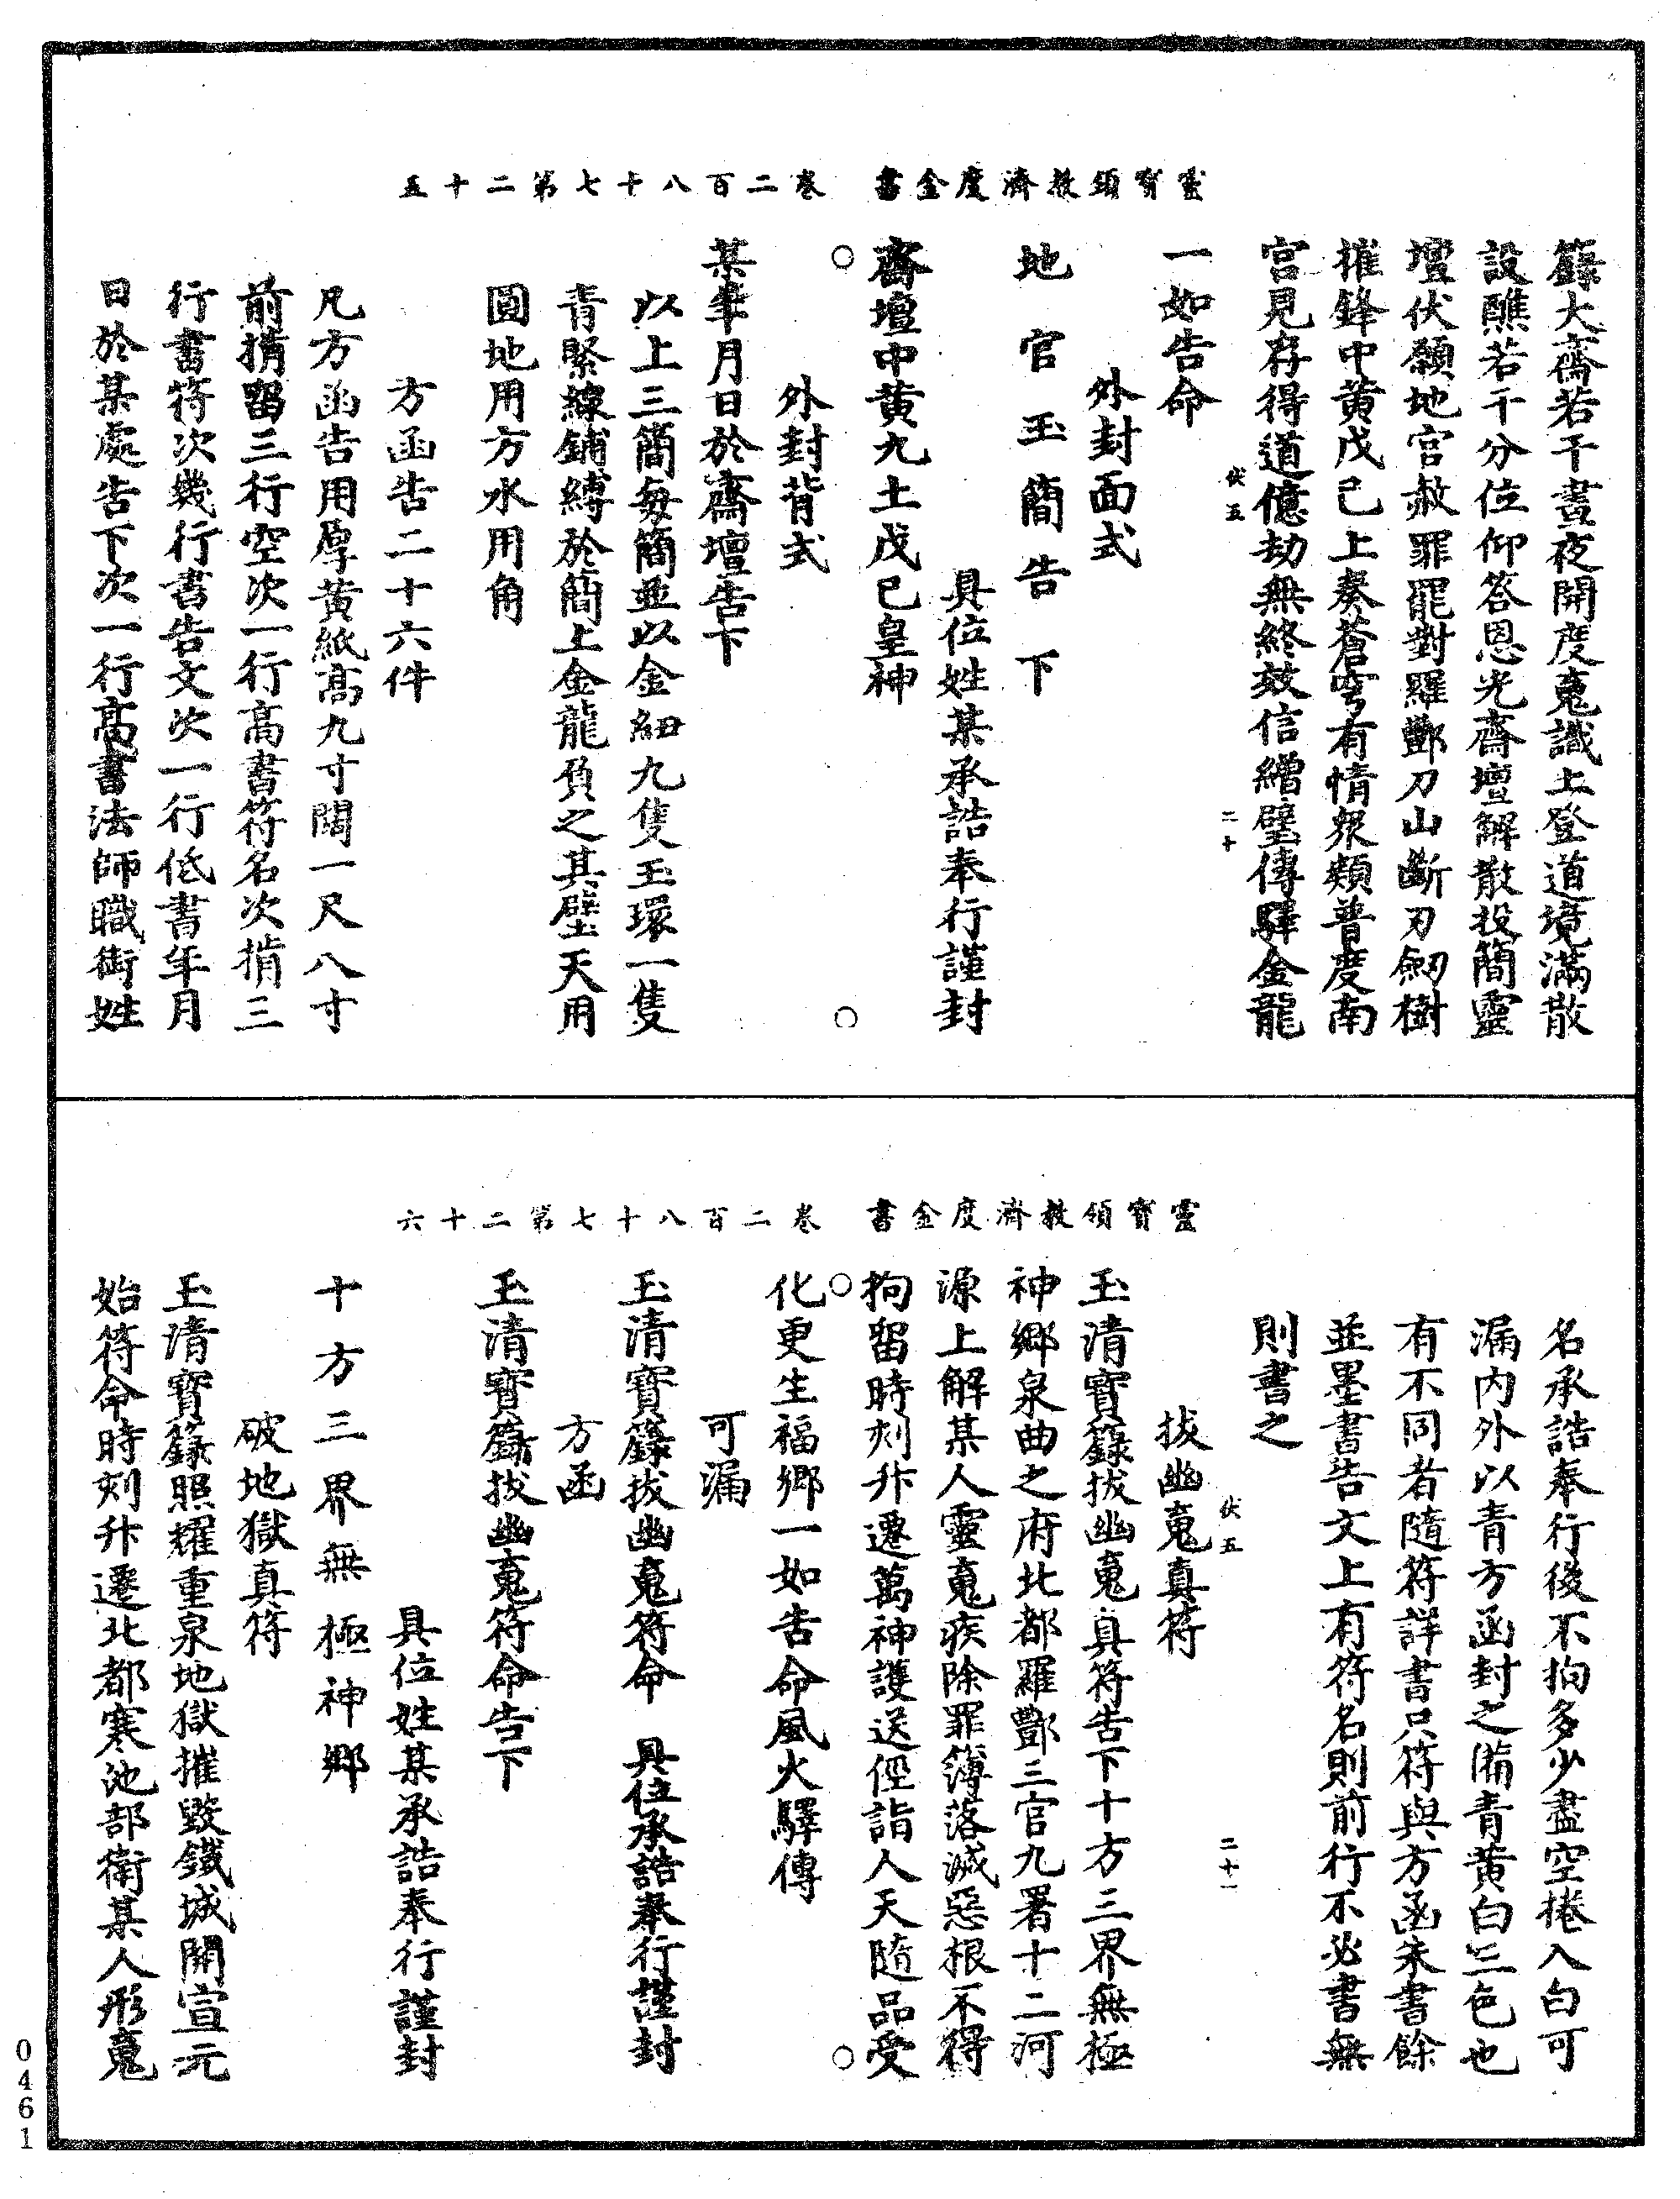 靈寶領教濟度金書　卷二百八十七第二十五
籙大齋若干晝夜開度䰟識上登道境滿散
設醮若干分位仰答恩光齋壇解散投簡靈
壇伏願地官赦罪罷對羅酆刀山斷刃劒樹
摧鋒中黃戊己上奏蒼穹有情衆類普度南
宮見存得道億劫無終效信繒璧傳驛金龍
伏五　二十
一如告命
外封面式
地官玉簡告下
具位姓某承誥奉行謹封
齋壇中黃九土戊己皇神
外封背式
某年月日於齋壇告下
以上三簡每簡並以金紐九隻玉環一隻
青緊線鋪縛於簡上金龍負之其璧天用
圓地用方水用角
方函告二十六件
凡方函告用厚黃紙高九寸闊一尺八寸
前揹留三行空次一行高書符名次揹三
行書符次幾行書告文次一行低書年月
日於某處告下次一行高書法師職銜姓
靈寶領教濟度金書　卷二百八十七第二十六
名承誥奉行後不拘多少盡空捲入白可
漏內外以青方函封之漏青黃白三色也
有不同者隨符詳書只符與方函朱書餘
並墨書告文上有符名則前行不必書無
則書之
伏五　二十一
拔幽䰟真符
玉清寶籙拔幽䰟真符告下十方三界無極
神鄉泉曲之府北都羅酆三官九署十二河
源上解某人靈䰟疾除罪簿落滅惡根不得
拘留時刻升遷萬神護送徑詣人天隨品受
化更生福鄉一如告命風火驛傳
可漏
玉清寶籙拔幽䰟符命　具位承誥奉行謹封
方函
玉清寶籙拔幽䰟符命告下
具位姓某承誥奉行謹封
十方三界無極神鄉
破地獄真符
玉清寶籙照耀重泉地獄摧毀鐵城開宣元
始符命時刻升遷北都寒池部衛某人形䰟
0461